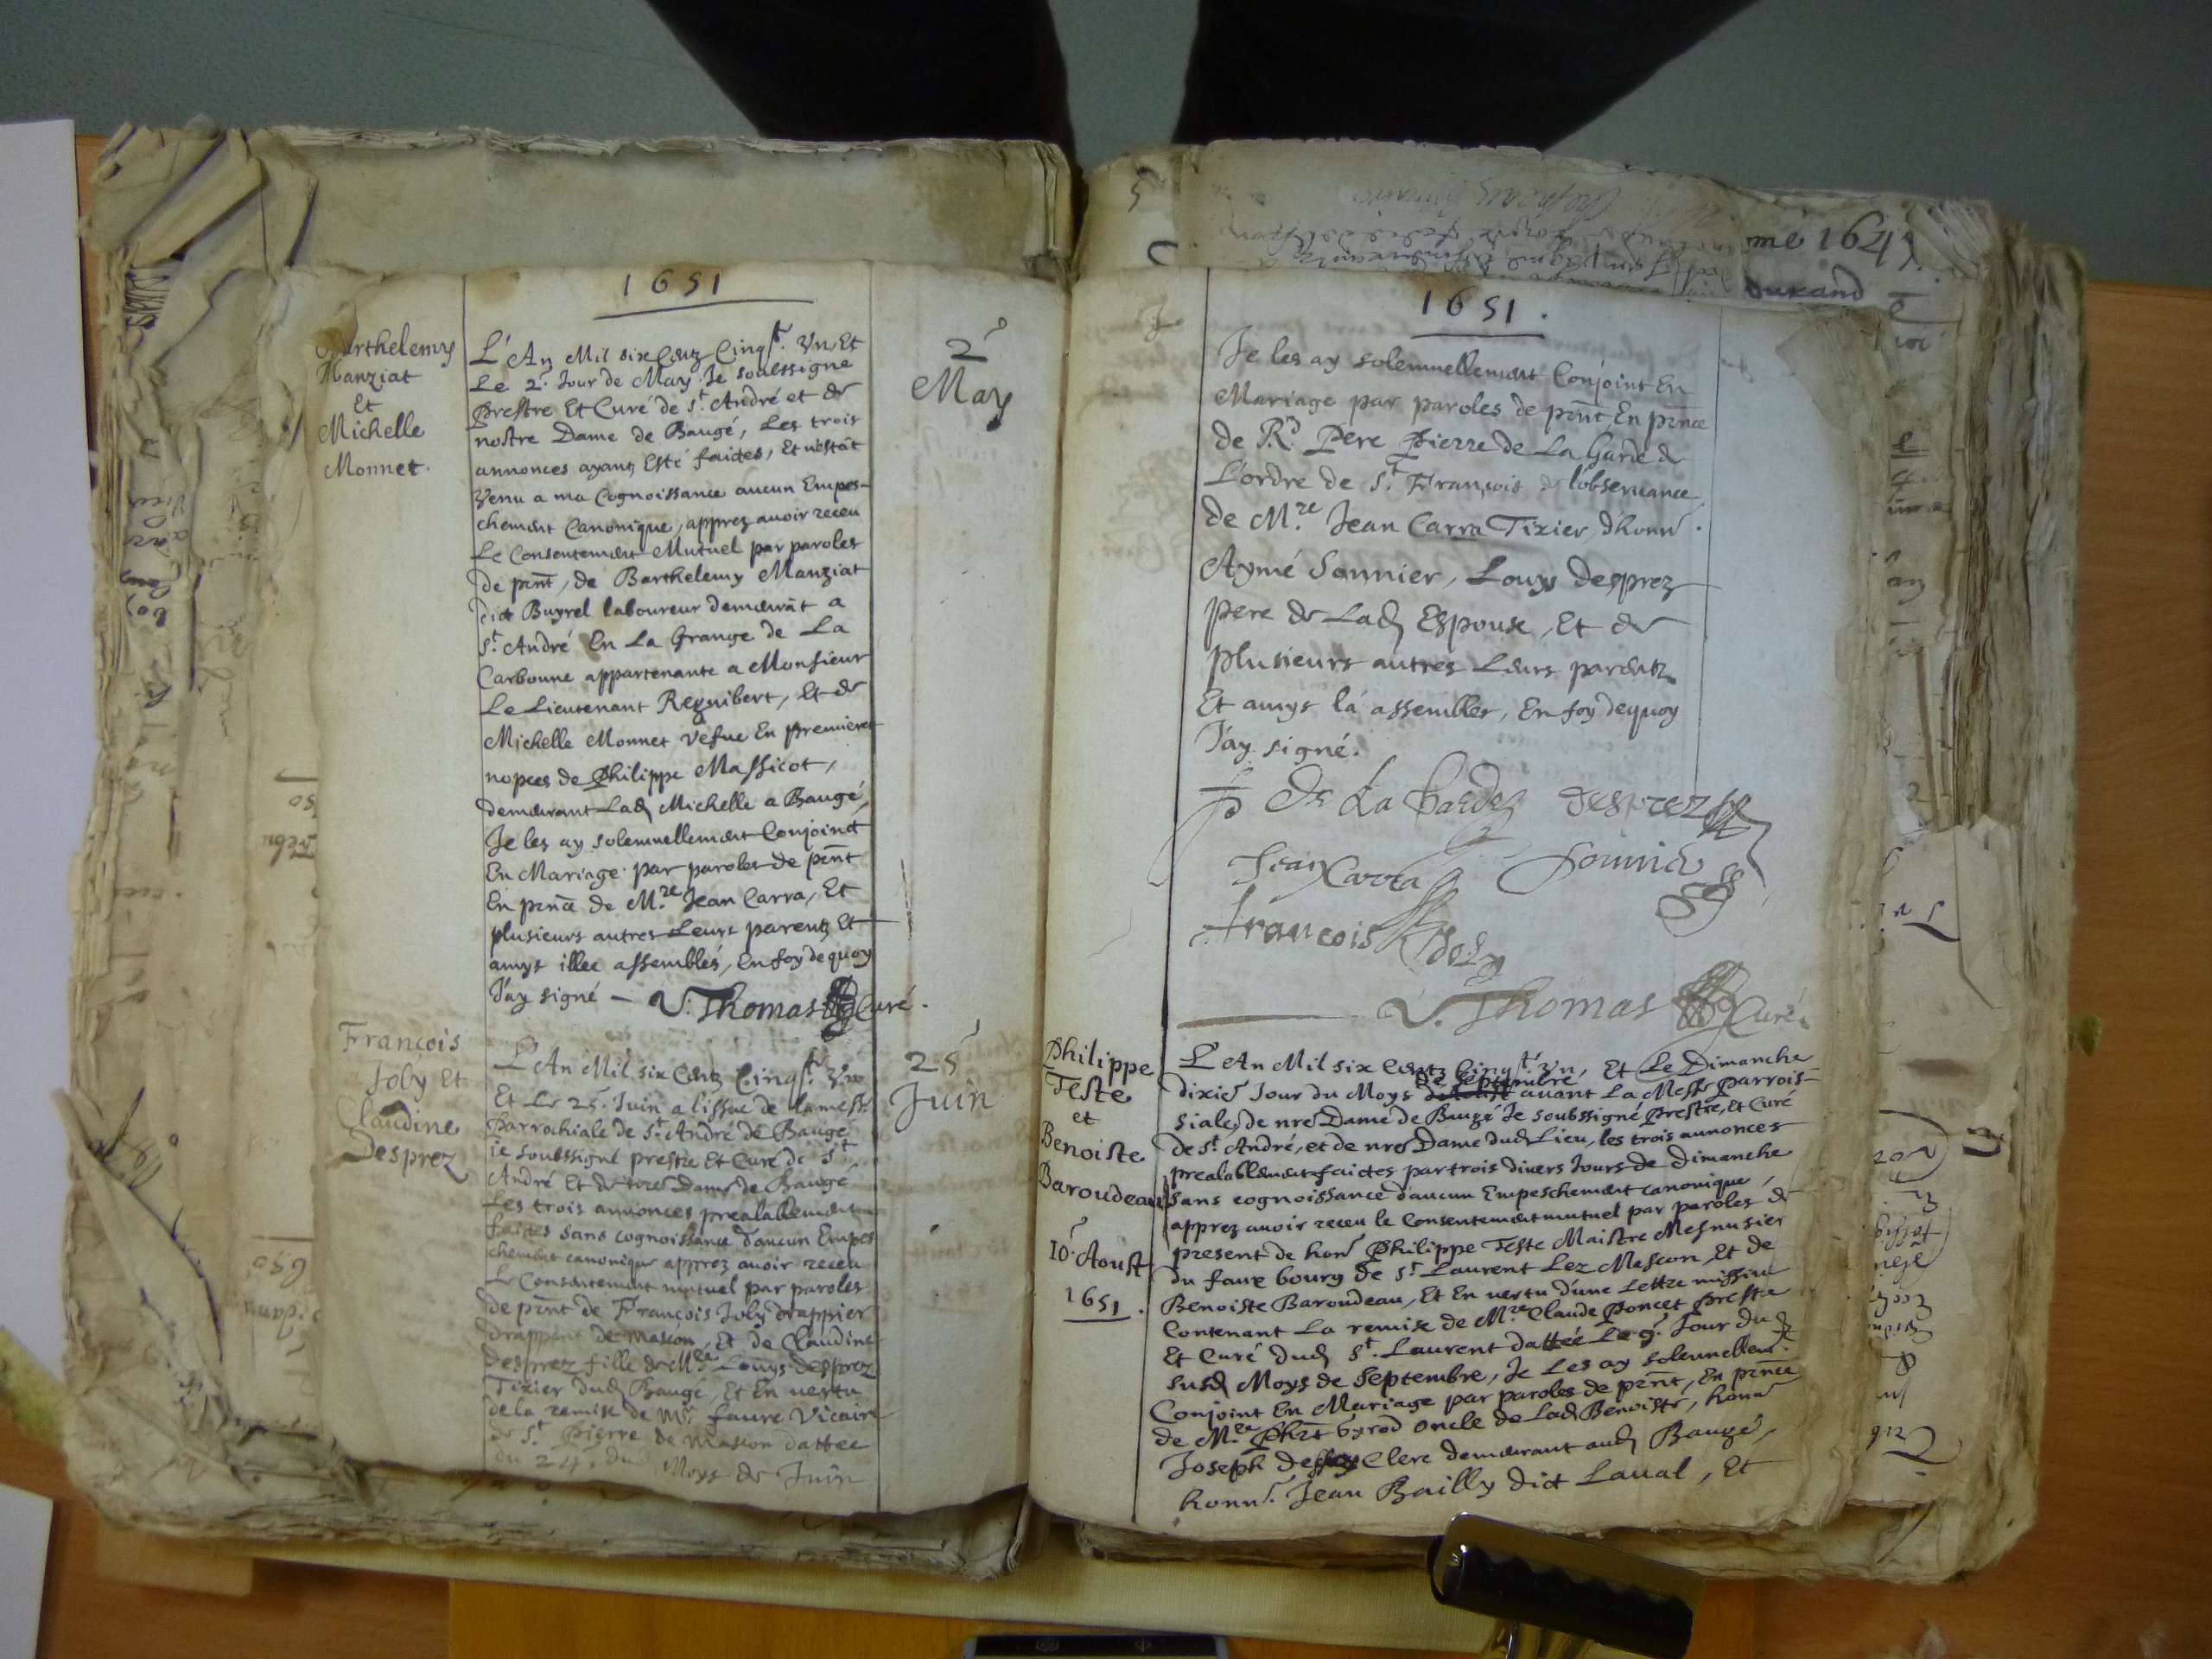 1651
Barthelemy
Manziat
Et
Michelle
Monnet.
L'An Mil six Centz Cinqt. Vn, Et
Le 2. Jour de May Je soubssigné
Prestre Et Curé de St. André et de
nostre Dame de Baugé, Les trois
annonces ayantz Esté faictes, Et n'estāt
Venu a ma Cognoissance aucun Empes-
chement Canonique, apprez auoir receu
Le Consentement Mutuel par paroles
de pnt, de Barthelemy Manziat
dict Buyrel laboureur demeurāt a
St. André En La Grange de La
Carbonne appartenante a Monsieur
Le Lieutenant Regnibert, Et de
Michelle Monnet vefue En premieres
nopces de Philippe Massicot,
demeurant Lad. Michelle a Baugé,
Je les ay solemnellement Conjoinct
En Mariage par paroles de pnt
En pnce de M.re Jean Carra, Et
plusieurs autres Leurs parentz Et
amys illec assemblés, En foy de quoy
J'ay signé — V. Thomas Curé.
2
May
François
Joly Et
Claudine
Desprez
L'An Mil six Centz Cinqt. Vn
Et Le 25. Juin a l'issue de la messe
Parrochiale de St. André de Baugé
ie soubssigné prestre Et Curé de St.
André Et de nre Dame de Baugé
Les trois annonces prealablement
faictes sans cognoissance d'aucun Empes
chement canonique apprez auoir receu
Le Consentement mutuel par paroles
de pnt de François Joly drappier
drappant de Mascon, Et de Claudine
Desprez fille de M.re Louys Desprez
Tixier dud. Baugé, Et En vertu
de la remise de Mr. faure Vicaire
de St. Pierre de Mascon dattée
du 24. dud. Moys de Juin
25
Juin
1651.
Je les ay solemnellement Conjoint En
Mariage par paroles de pnt En pnce
de Rd. Pere Pierre de La Garde de
L'ordre de St. François de l'obseruance
de M.re Jean Carra Tixier, d'honn.
Aymé Sonnier, Louys Desprez
Pere de Lad. Espouse, Et de
plusieurs autres Leurs parentz
Et amys là assemblez, En foy de quoy
J'ay signé.
De La Garde Desprez
Jean Carra Sonnier
François Joly
V. Thomas Curé.
Philippe
Teste
et
Benoiste
Baroudeau
10. Aoust
1651.
L'An Mil six Centz Cinqt. Vn, Et Le Dimanche
de Septembre
dixie. Jour du Moys auant La Messe Parrois-
siale de nre Dame de Baugé Je soubssigné Prestre, Et Curé
de St. André, et de nre Dame dud. Lieu, les trois annonces
prealablement faictes par trois diuers Jours de dimanche
sans cognoissance d'aucun Empeschement canonique,
apprez auoir receu le Consentement mutuel par paroles de
present de honn. Philippe Teste Maistre Mesnusier
du faux bourg de St. Laurent Lez Mascon, Et de
Benoiste Baroudeau, Et En vertu d'une Lettre missiue
Contenant La remise de M.re Claude Poncet Prestre
Et Curé dud. St. Laurent dattée Le 9. Jour du d.
susd. Moys de Septembre, Je Les ay solemnellem.
Conjoint En Mariage par paroles de pnt, En pnce
de M.re Oncle de Lad. Benoiste, honn.
Joseph Clerc demeurant aud. Baugé,
honn. Jean Bailly dict Laual, Et